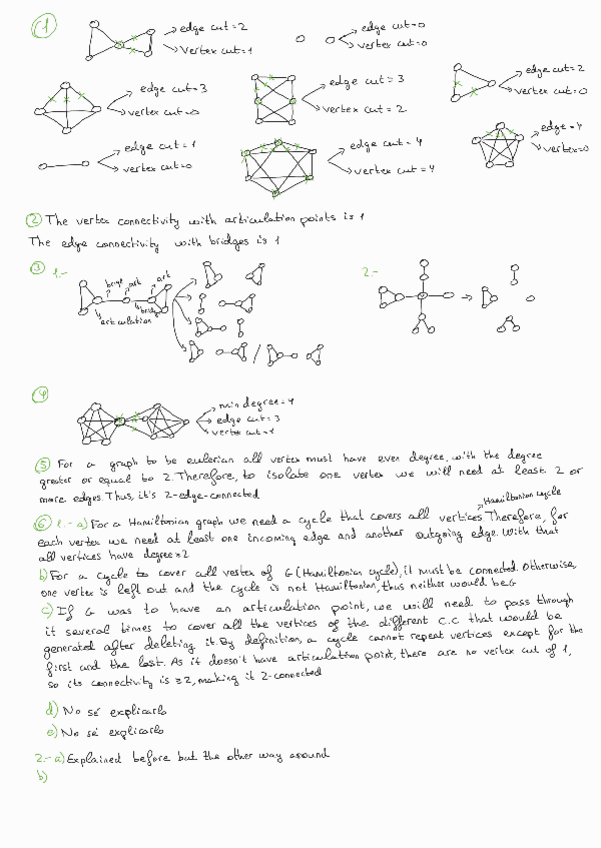 1
edge cut = 2
vertex cut = 1
edge cut = 0
vertex cut = 0
edge cut = 3
vertex cut = 0
edge cut = 3
vertex cut = 2
edge cut = 2
vertex cut = 0
edge cut = 1
vertex cut = 0
edge cut = 4
vertex cut = 4
edge = 4
vertex = 0
2 The vertex connectivity with articulation points is 1
The edge connectivity with bridges is 1
3 1.-
art
art
articulation
2.-
4
min degree = 4
edge cut = 3
vertex cut = 1
5 For a graph to be eulerian all vertex must have even degree, with the degree
greater or equal to 2. Therefore, to isolate one vertex we will need at least 2 or
more edges. Thus, it's 2-edge-connected
Hamiltonian cycle
6 1.- a) For a Hamiltonian graph we need a cycle that covers all vertices. Therefore, for
each vertex we need at least one incoming edge and another outgoing edge. With that
all vertices have degree ≥ 2
b) For a cycle to cover all vertex of G (Hamiltonian cycle), it must be connected. Otherwise,
one vertex is left out and the cycle is not Hamiltonian, thus neither would be G
c) If G was to have an articulation point, we will need to pass through
it several times to cover all the vertices of the different C.C that would be
generated after deleting it. By definition, a cycle cannot repeat vertices except for the
first and the last. As it doesn't have articulation point, there are no vertex cut of 1,
so its connectivity is ≥ 2, making it 2-connected
d) No sé explicarlo
e) No sé explicarlo
2.- a) Explained before but the other way around
b)